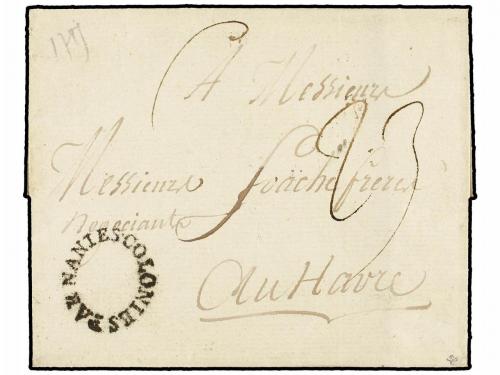 A Messieurs
Messieurs foâche freres
Negociants
Au Havre
23
COLONIES PAR NANTES